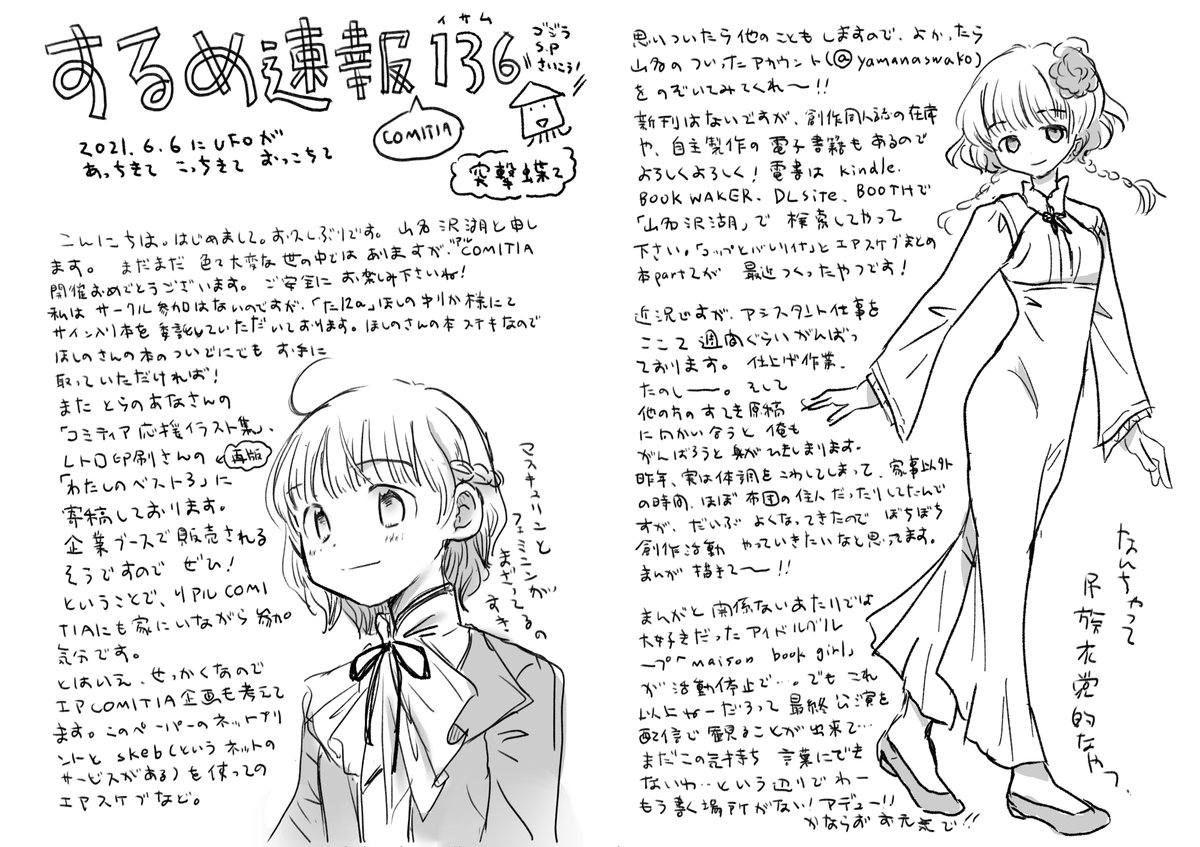 するめ速報136
イサム
COMITIA
ゴジラ
S.P
さいこう!
突撃蝶々
2021.6.6にUFOが
あっちきて こっちきて おっこちて
こんにちは。はじめまして。お久しぶりです。山名沢湖と申し
ます。まだまだ 色々大変な世の中では ありますが、リアルCOMITIA
開催おめでとうございます。ご安全に お楽しみ下さいね!
私は サークル参加はないのですが、「た12a」ほしの中りか様にて
サイン入り本を 委託していただいております。ほしのさんの本 ステキなので
ほしのさんの本のついでにでも お手に
取っていただければ!
また とらのあなさんの
「コミティア応援イラスト集」、
レトロ印刷さんの 再版
「わたしのベスト3」に
寄稿しております。
企業ブースで販売される
そうですので ぜひ!
ということで、リアルCOMI
TIAにも家にいながら 参加
気分です。
とはいえ、せっかくなので
エアCOMITIA企画も考えて
ます。このペーパーのネットプリ
ントと skeb(というネットの
サービスがある)を使っての
エアスケブなど。
マスキュリンと
フェミニンが
まざってるの
すき
思いついたら他のことも しますので、よかったら
山名の ついったアカウント(@yamanaswako)
を のぞいてみてくれ〜!!
新刊はないですが、創作同人誌の在庫
や、自主製作の電子書籍もあるので
よろしくよろしく! 電書は kindle.
BOOK WAKER. DLsite. BOOTHで
「山名沢湖」で 検索してやって
下さい。「コップとがいりけ」とエアスケブまとめ
本part2が 最近つくったやつです!
近況ですが、アシスタント仕事を
ここ2週間ぐらいがんばっ
ております。仕上げ作業、
たのしー。そして
他の方の すてき原稿
に向かい合うと 俺も
がんばろうと 身がひきしまります。
昨年、実は体調をこわしてしまって、家事以外
の時間、ほぼ 布団の住人だったりしてたんで
すが、だいぶ よくなってきたので ぼちぼち
創作活動 やっていきたいなと思ってます。
まんが 描きて〜!!
まんがと 関係ないあたりでは
大好きだったアイドルグル
ープ「maison book girl」
が 活動休止で…。でも これ
以上ねーだろって 最終公演を
配信で 観ることが出来て…
まだこの気持ち 言葉にでき
ないわ…という辺りで わー
もう書く場所がない! アデュー!!
かならずお元気で!!
なんちゃって
民族衣裳
的なやつ、